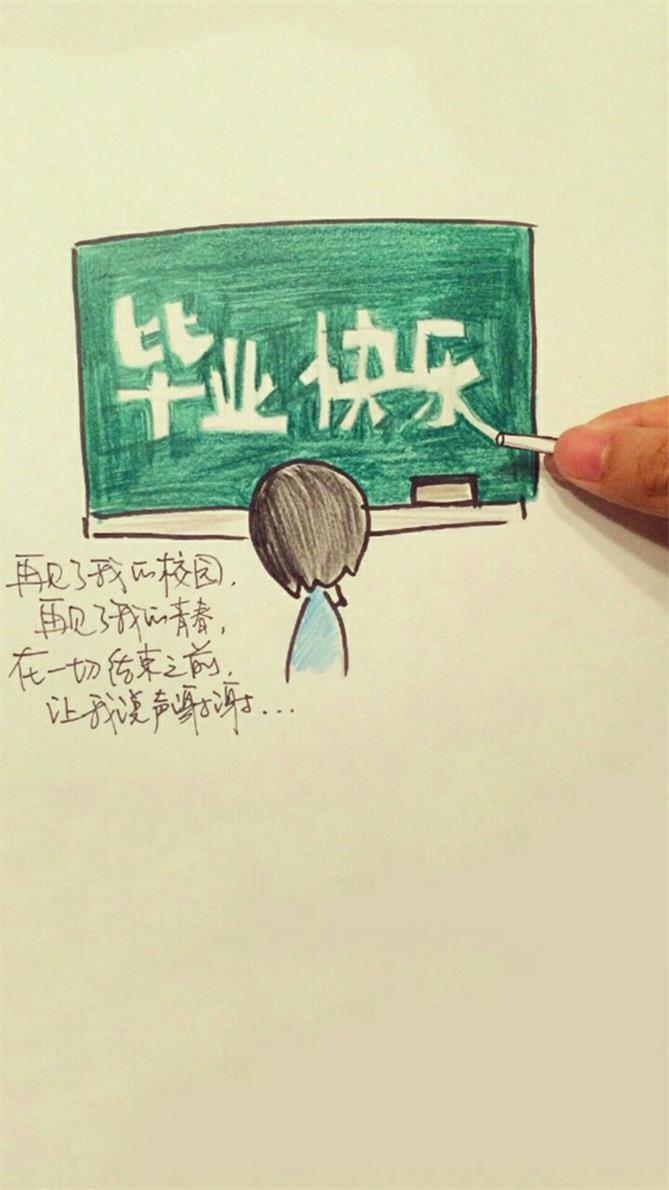 毕业快乐
再见了我的校园，
再见了我的青春，
在一切结束之前，
让我说声谢谢...